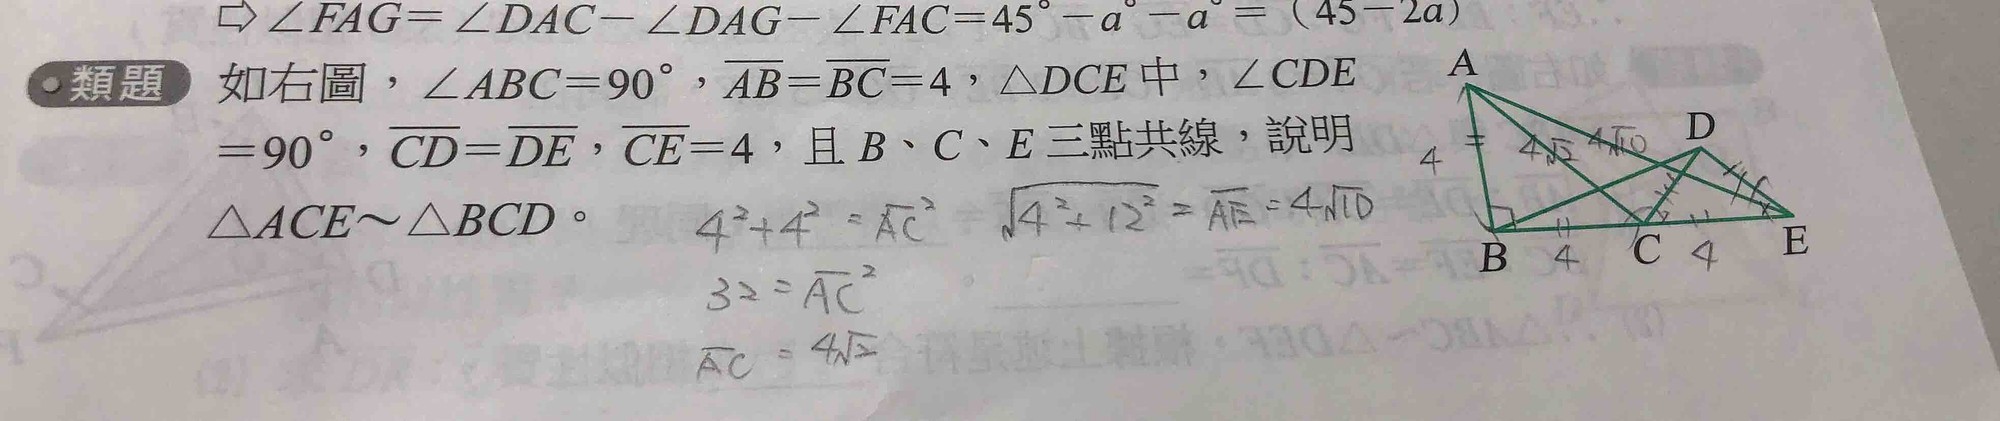 ⇨∠FAG=∠DAC－∠DAG－∠FAC=45°－a°－a°=（45－2a）
類題 如右圖，∠ABC=90°，AB=BC=4，△DCE中，∠CDE
=90°，CD=DE，CE=4，且B、C、E三點共線，說明
△ACE～△BCD。
4²+4²=AC² √4²+12²=AE=4√10
32=AC²
AC=4√2
A
D
4
4√2
4√10
B
4
C
4
E